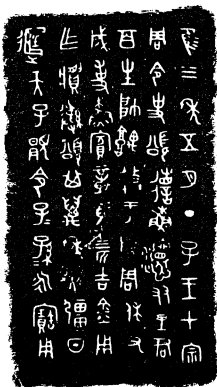 隹三年五月丁子王才宗
周令史頌蘇友里君
百生帥盩于成周休又
成事蘇賓章馬四匹吉金用
乍彝頌其萬年無疆日
天子令子孫永寶用